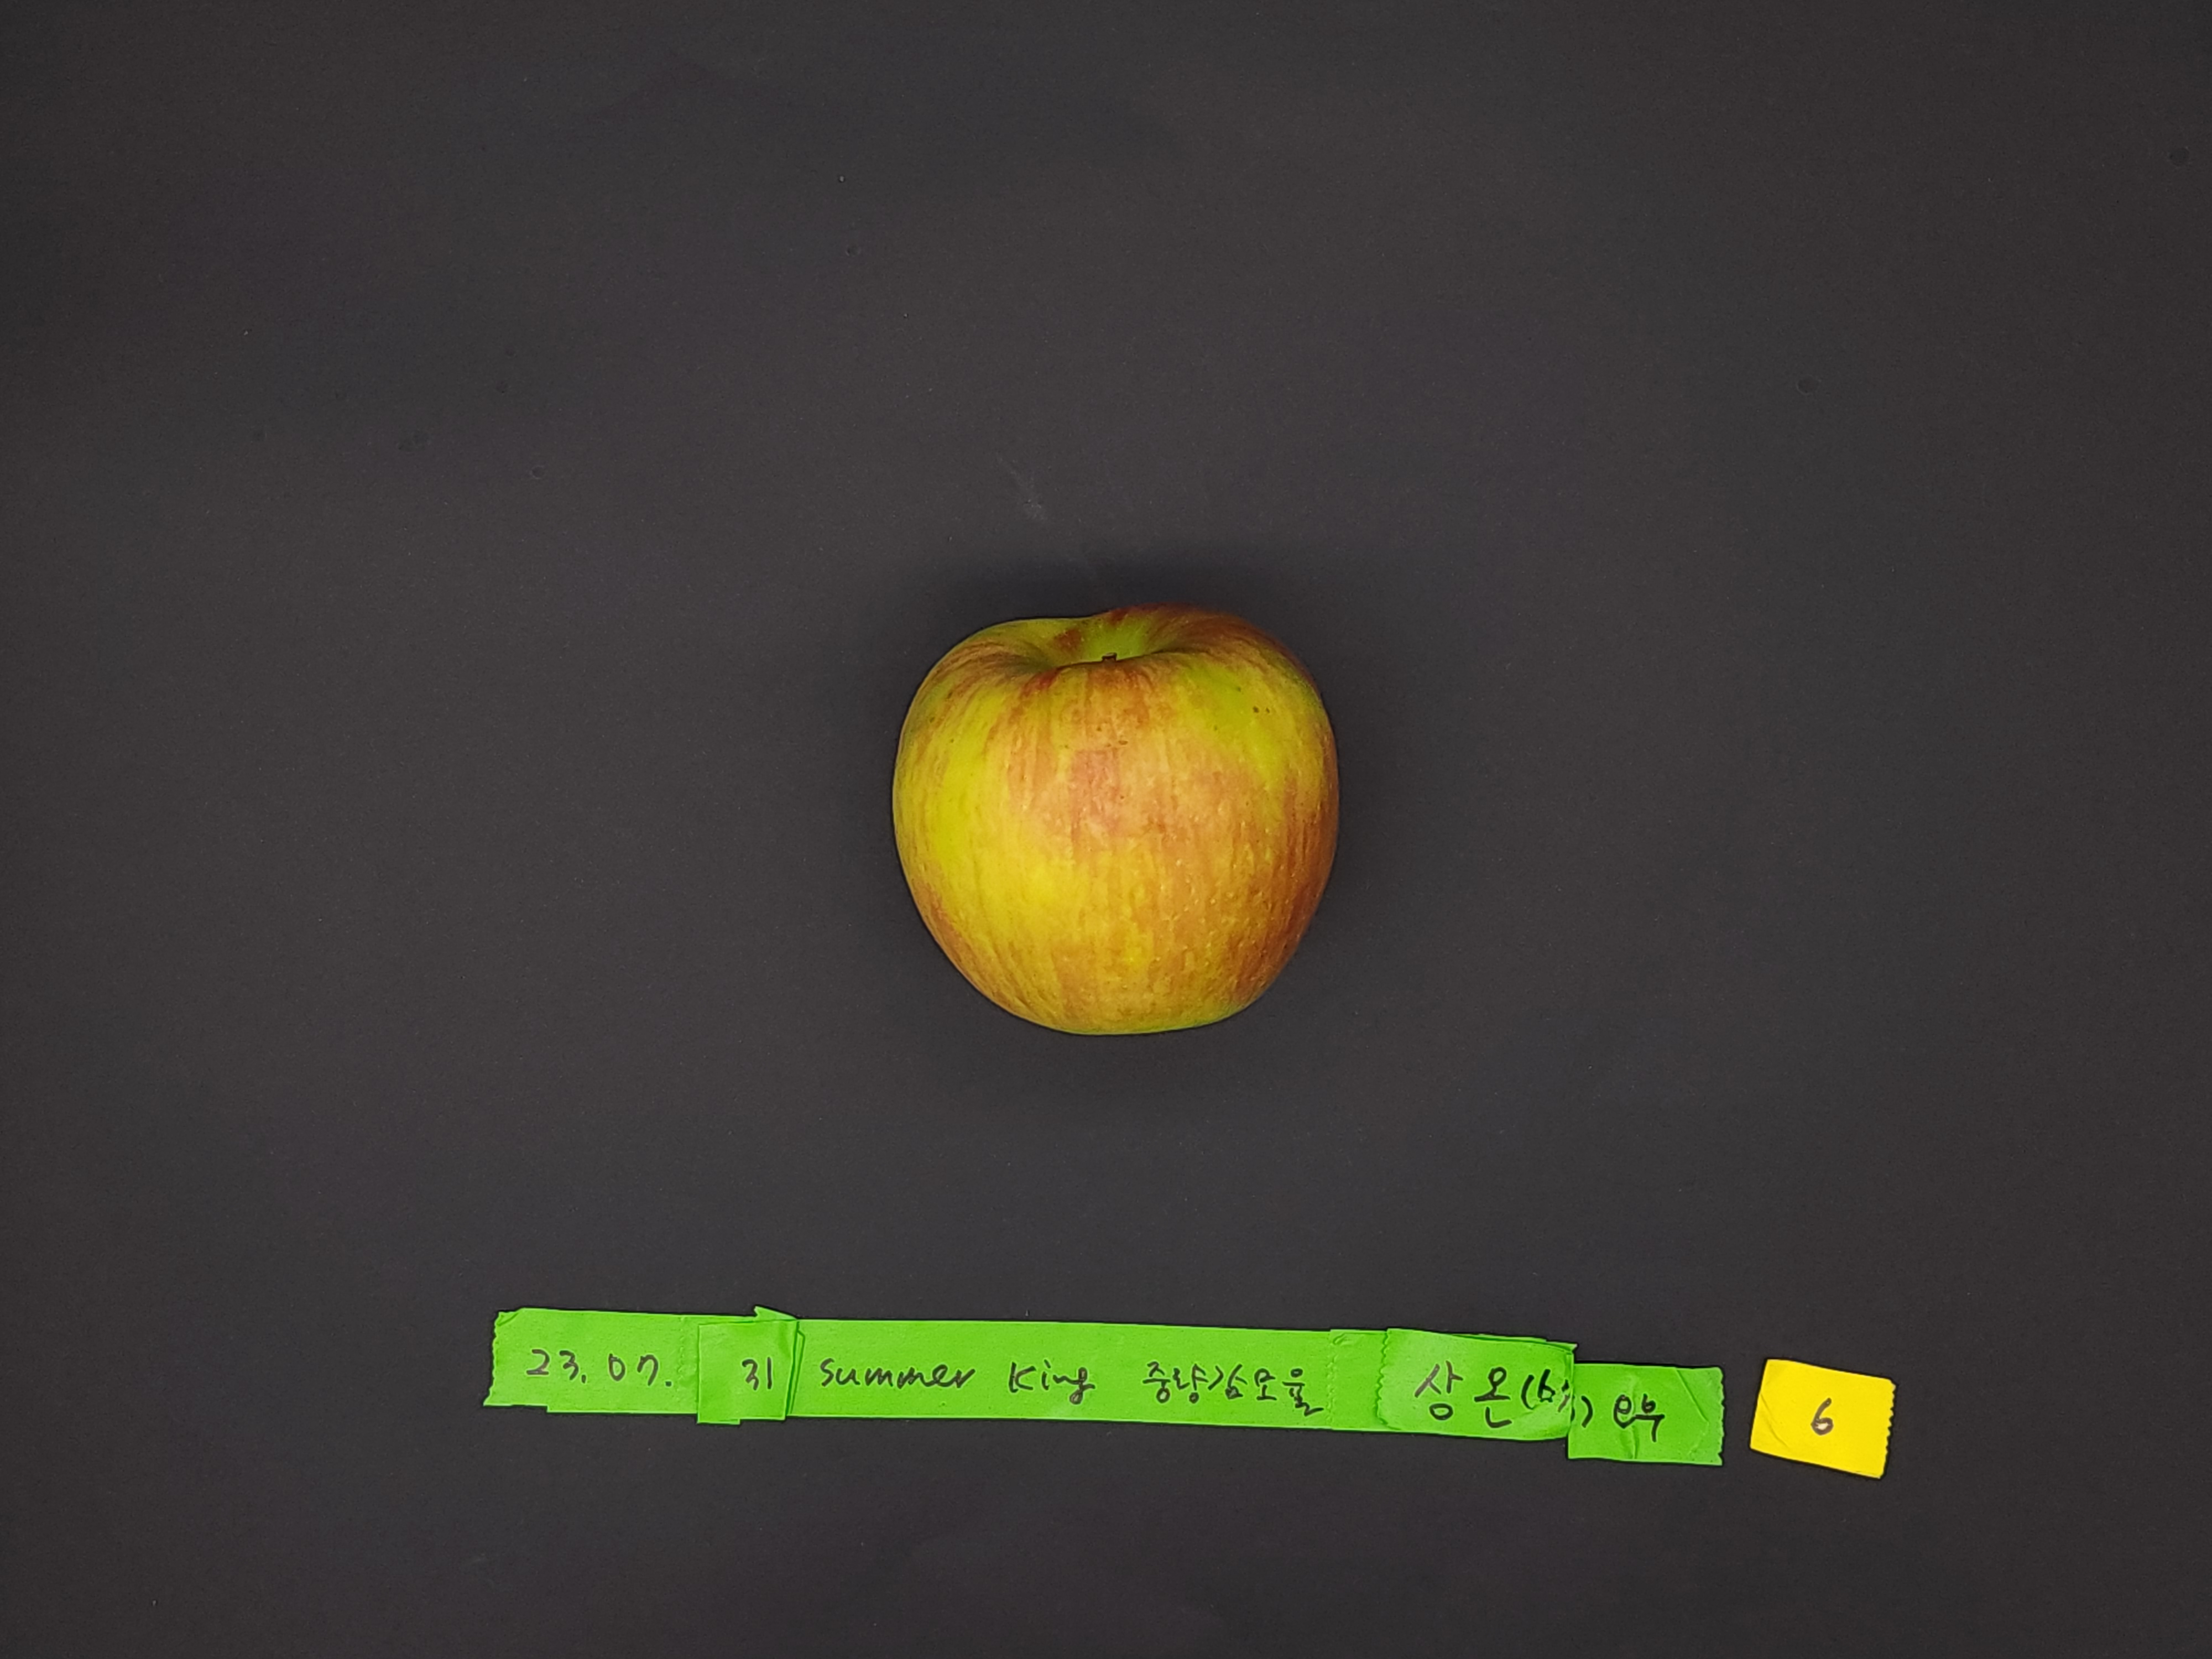 23. 07. 31 summer King 중량감모율 상온 6